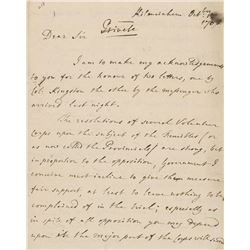 Kilmainham Octr
Private
Dear Sir
I am to make my acknowledgements
to you for the honour of two letters, one by
Col. Kingston the other by the messenger who
arrived last night.
The resolutions of several Volunteer
Corps upon the subject of the Fencibles (or
as now called the Provincials) are strong, but
in proportion to the opposition, Government I
conceive must incline to give the measure
fair support, at least to leave nothing to be
complained of in the trial; especially as
in spite of all opposition you may depend
upon it the major part of the Corps will